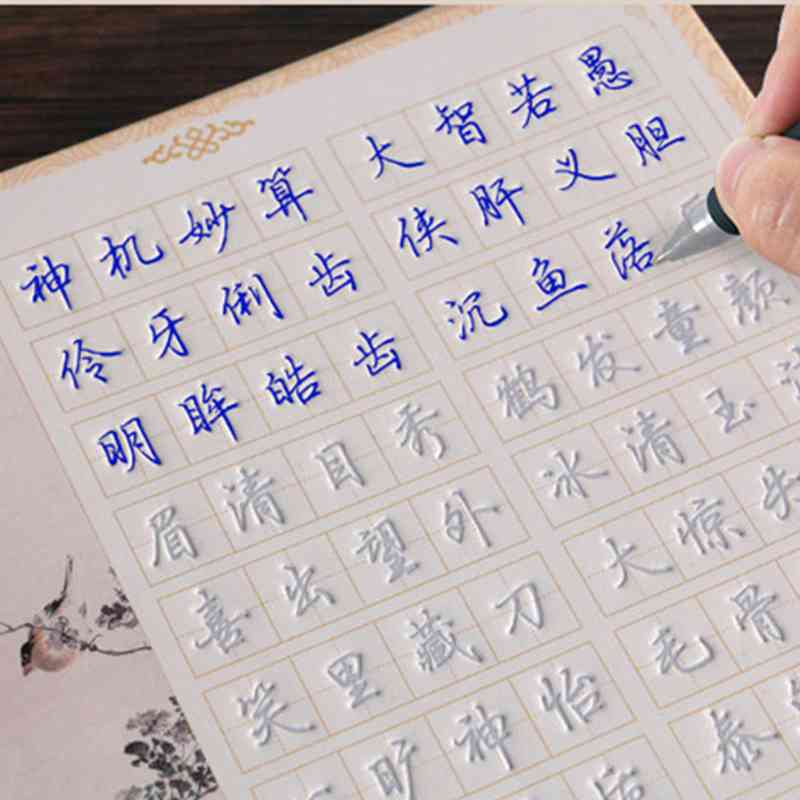 神机妙算 大智若愚
伶牙俐齿 侠肝义胆
明眸皓齿 沉鱼落
眉清目秀 鹤发童颜
喜出望外 冰清玉洁
笑里藏刀 大惊失
旷神怡 毛骨
泰